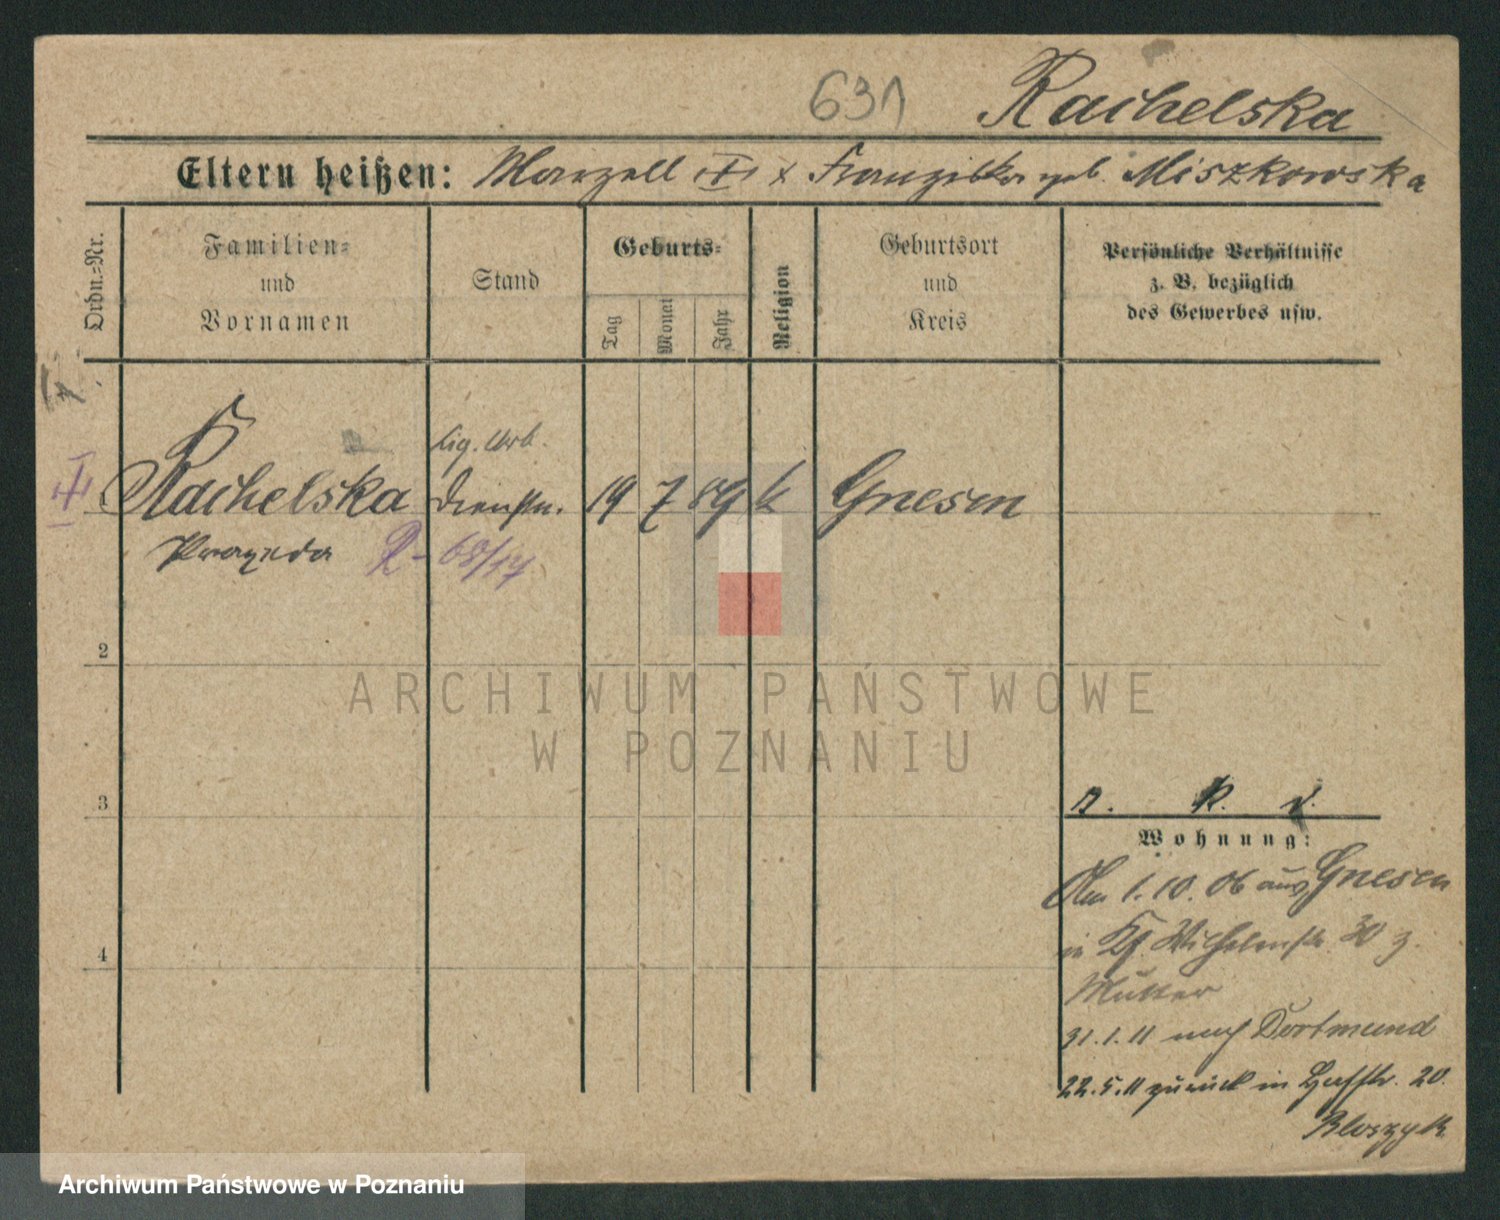 631 Rachelska
Eltern heißen: Marzell Franziska geb. Miszkowska
Ordn.-Nr.
Familien-
und
Vornamen
Stand
Geburts-
Tag
Monat
Jahr
Religion
Geburtsort
und
Kreis
Persönliche Verhältnisse
z. B. bezüglich
des Gewerbes usw.
Cig. Arb.
Rachelska Dienstm. 19 7 89 k Gnesen
Praxeda R - 68/17
2
3
4
r. k. v.
Wohnung:
Am 1.10.06 aus Gnesen
in Wilhelmstr. 30 z.
Mutter
31.1.11 nach Dortmund
22.5.11 zurück in 20.
ARCHIWUM PAŃSTWOWE
W POZNANIU
Archiwum Państwowe w Poznaniu